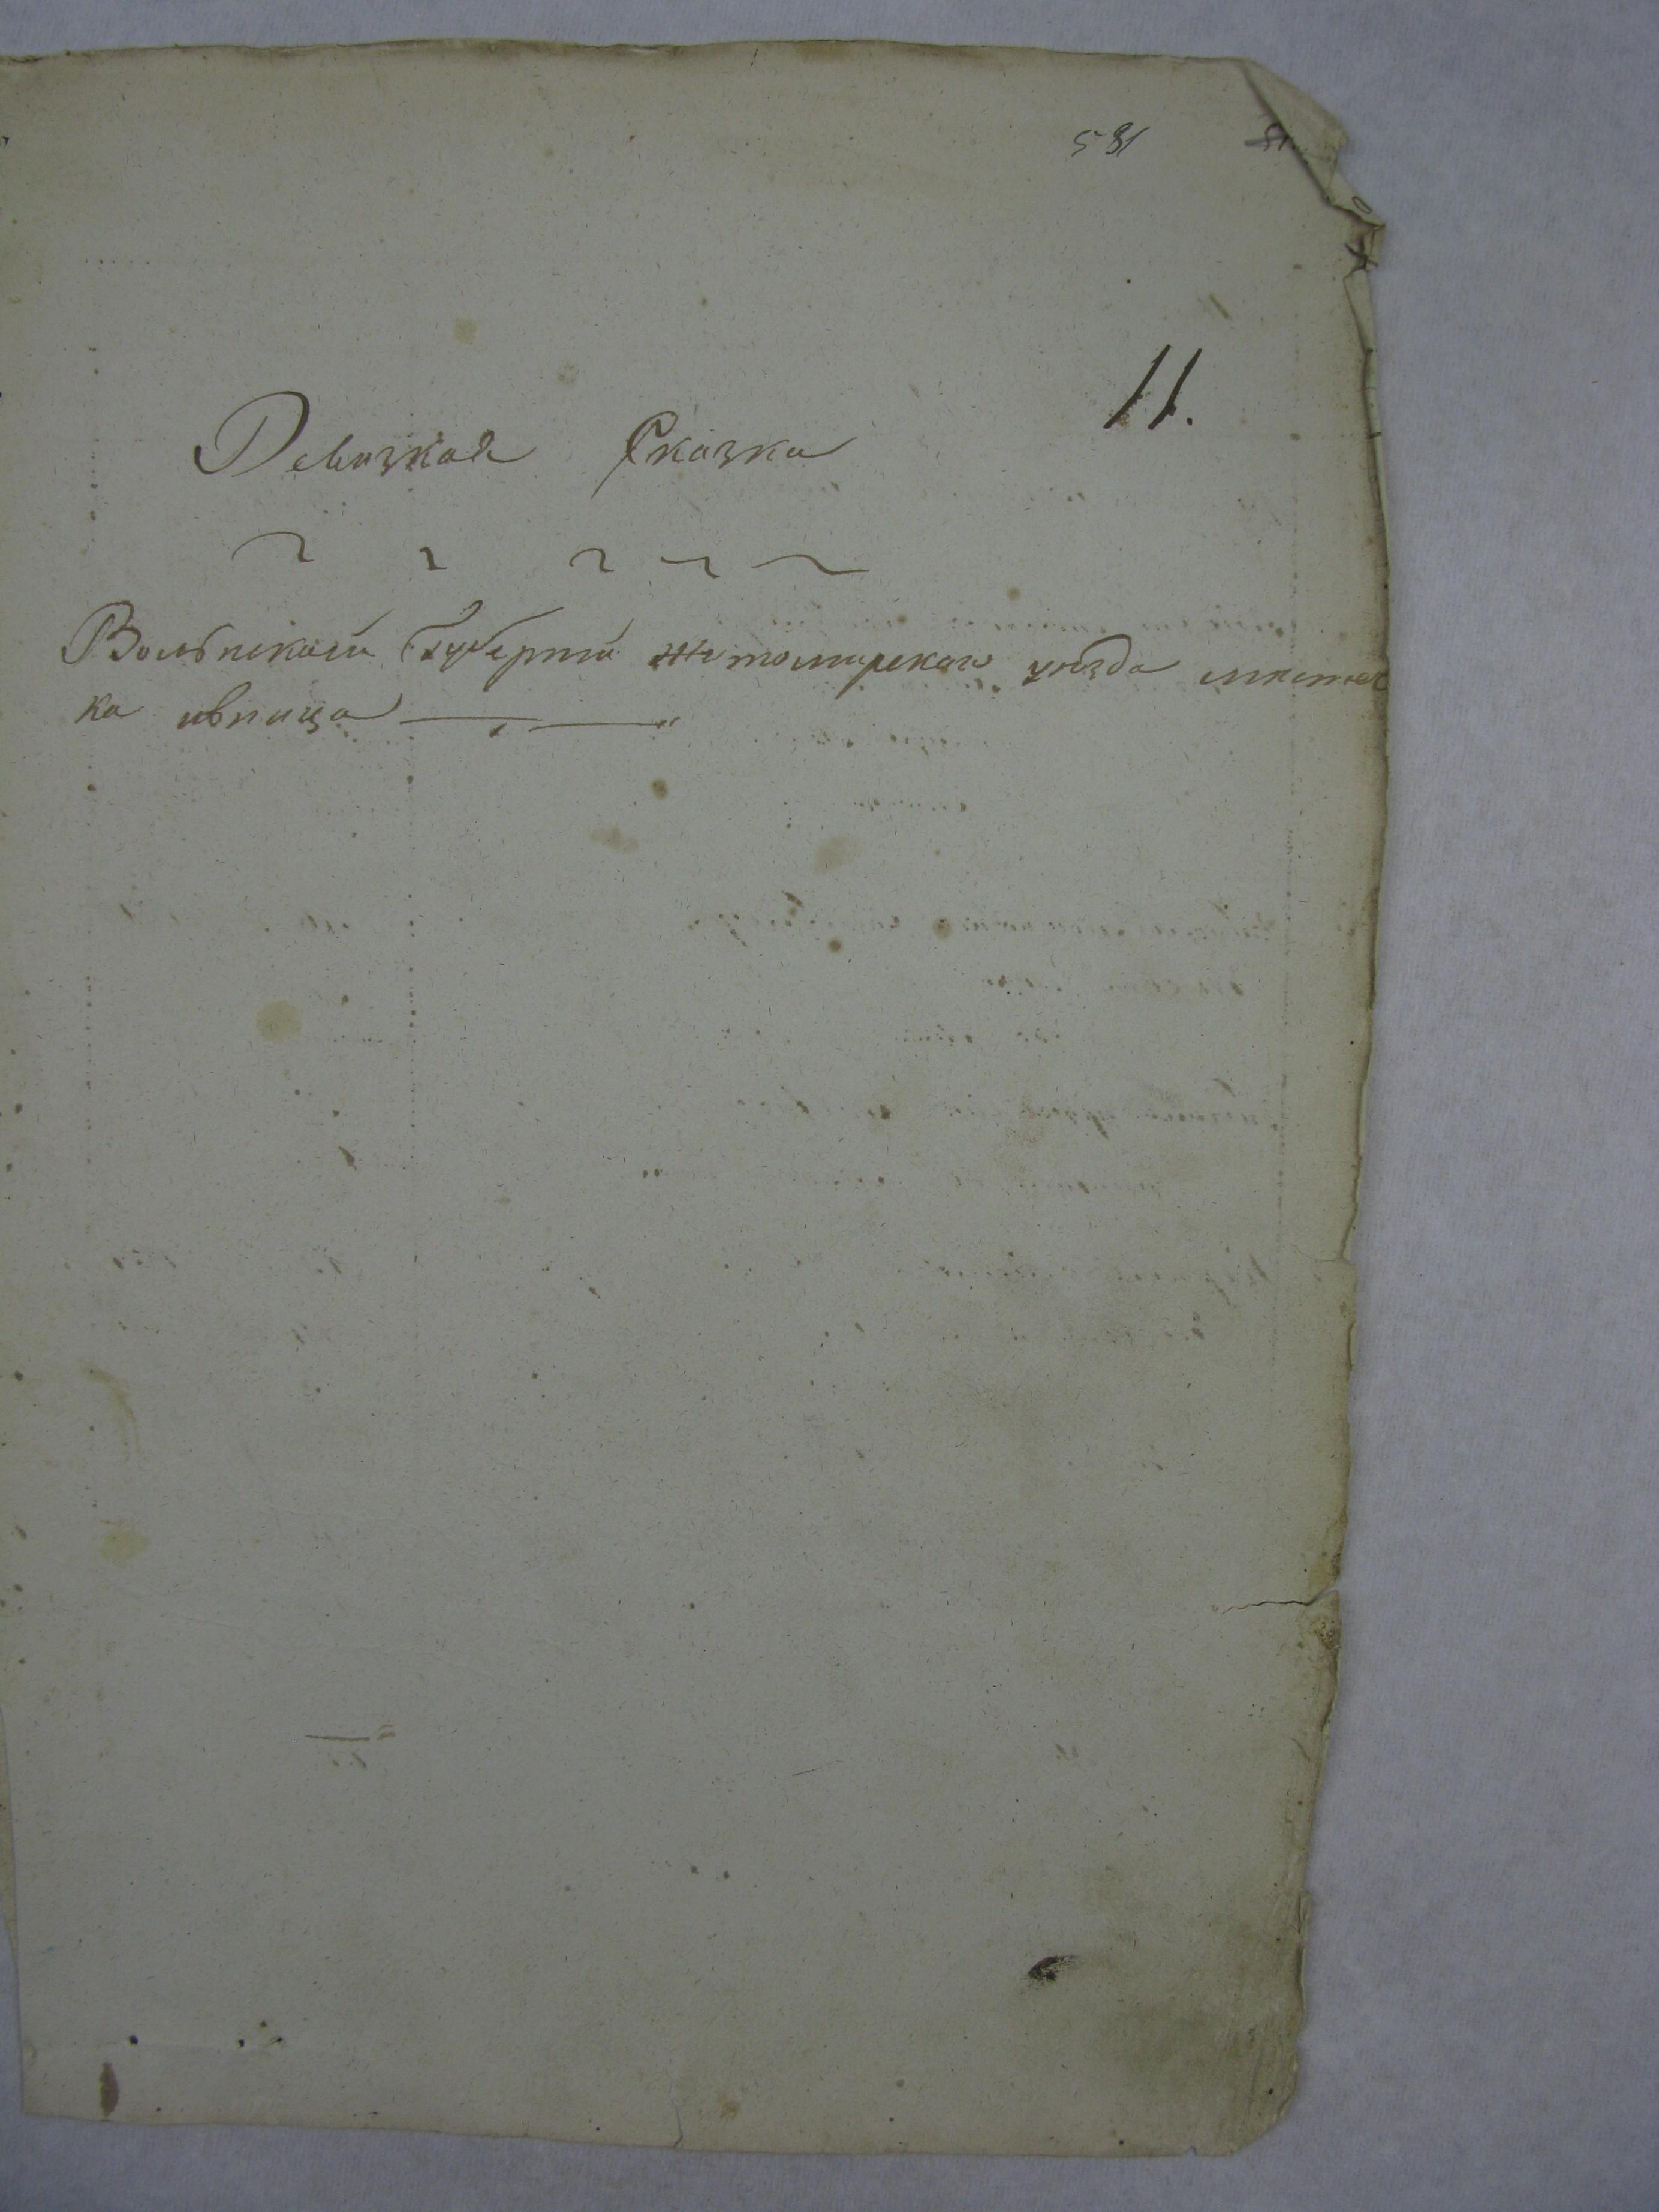 581
11.
Ревизкая Сказка
Волынской Губернии житомирскаго уезда местеч
ка ивница